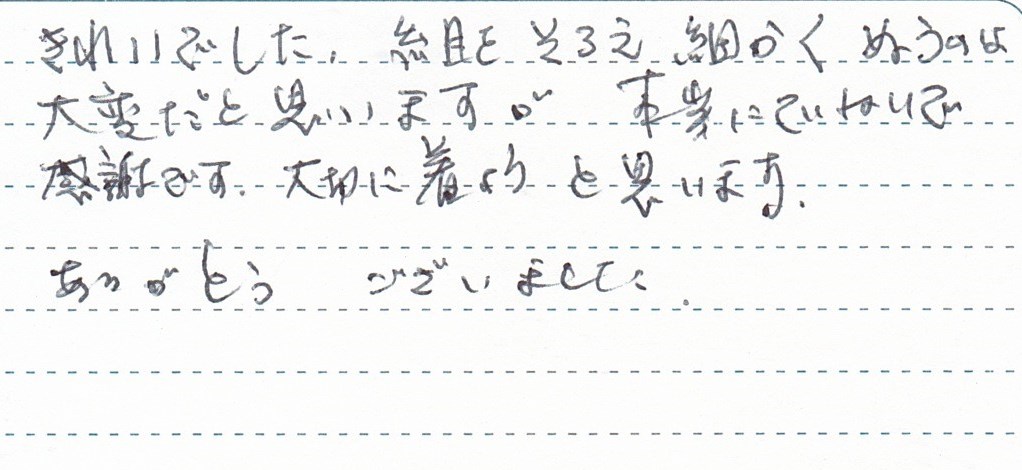 きれいでした。糸目をそろえ細かくぬうのは
大変だと思いますが 本当にていねいで
感謝です。大切に着ようと思います。
ありがとう ございました。